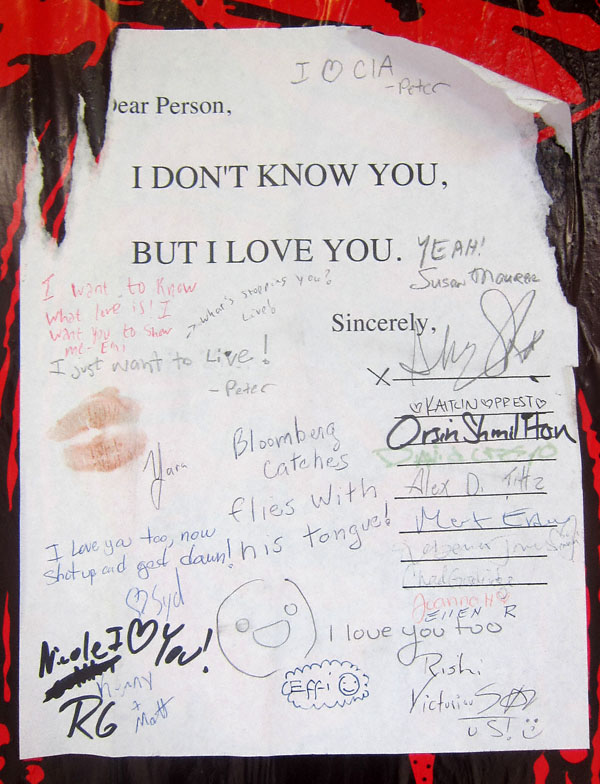 I ♡ CIA
-Peter
Dear Person,
I DON'T KNOW YOU,
BUT I LOVE YOU.
YEAH!
Susan Maurer
I want to know
what love is! I
want you to show
me - Emi
what's stopping you?
Live!
I just want to Live!
- Peter
Sincerely,
X
♡ KAITLIN ♡ PREST ♡
Orsin Shmil Hon
Alex D.
Yara
Bloomberg
catches
flies with
his tongue!
I Love you too, now
Shut up and get down!
♡ Syd
Joanna H
ELLEN R
Nicole I ♡ You!
I love you too
Rishi
Effi
Victoria
US!
RG
+
Matt